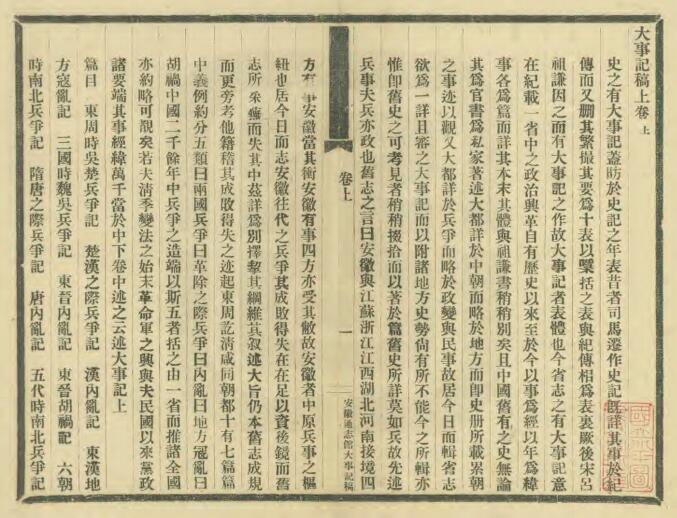 大事記稿上卷 上
史之有大事記蓋昉於史記之年表昔者司馬遷作史記既詳其事於紀
傳而又删其繁撮其要爲十表以櫽括之表與紀傳相爲表裏厥後宋呂
祖謙因之而有大事記之作故大事記者表體也今省志之有大事記意
在紀載一省中之政治興革自有歷史以來至於今以事爲經以年爲緯
事各爲篇而詳其本末其體與祖謙書稍稍別矣且中國舊有之史無論
其爲官書爲私家著述大都詳於中朝而略於地方而即史册所載累朝
之事迹以觀又大都詳於兵爭而略於政變與民事故居今日而輯省志
欲爲一詳且審之大事記而以附諸地方史勢尙有所不能今之所輯亦
惟即舊史之可考見者稍稍掇拾而以著於篇舊史所詳莫如兵故先述
兵事夫兵亦政也舊志之言曰安徽與江蘇浙江江西湖北河南接境四
卷上
一
安徽通志館大事記稿
方有事安徽當其衝安徽有事四方亦受其敝故安徽者中原兵事之樞
紐也居今日而志安徽往代之兵爭其成敗得失在在足以資後鏡而舊
志所采癰而失其中茲詳爲別擇挈其綱維其叙述大旨仍本舊志成規
而更旁考他籍稽其成敗得失之迹起東周訖淸咸同朝都十有七篇篇
中義例約分五類曰兩國兵爭曰革除之際兵爭曰內亂曰地方寇亂曰
胡禍中國二千餘年中兵爭之造端以斯五者括之由一省而推諸全國
亦約略可覩矣若夫淸季變法之始末革命軍之興與夫民國以來黨政
諸要端其事經緯萬千當於中下卷中述之云述大事記上
篇目　東周時吳楚兵爭記　楚漢之際兵爭記　漢內亂記　東漢地
方寇亂記　三國時魏吳兵爭記　東晉內亂記　東晉胡禍記　六朝
時南北兵爭記　隋唐之際兵爭記　唐內亂記　五代時南北兵爭記